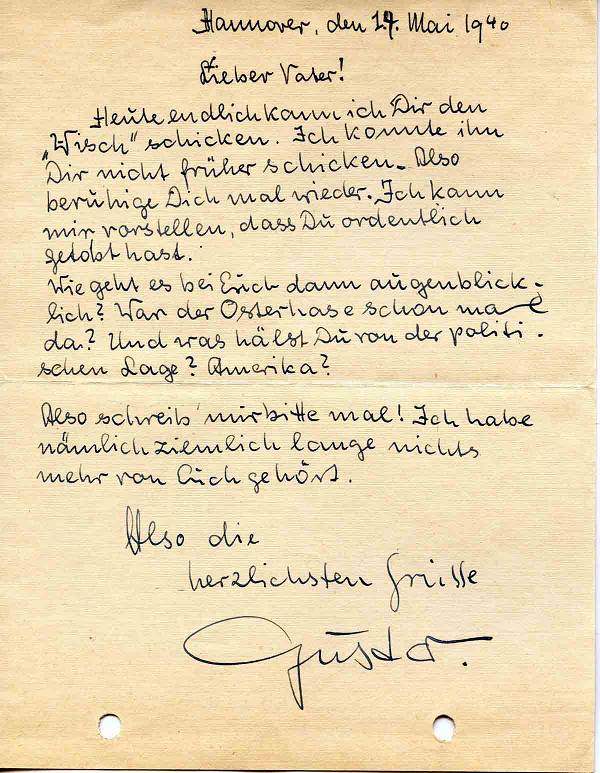 Hannover, den 14. Mai 1940
Lieber Vater!
Heute endlich kann ich Dir den
„Wisch“ schicken. Ich konnte ihn
Dir nicht früher schicken. Also
beruhige Dich mal wieder. Ich kann
mir vorstellen, dass Du ordentlich
getobt hast.
Wie geht es bei Euch dann augenblick-
lich? War der Osterhase schon mal
da? Und was hälst Du von der politi-
schen Lage? Amerika?
Also schreib' mir bitte mal! Ich habe
nämlich ziemlich lange nichts
mehr von Euch gehört.
Also die
herzlichsten Grüsse